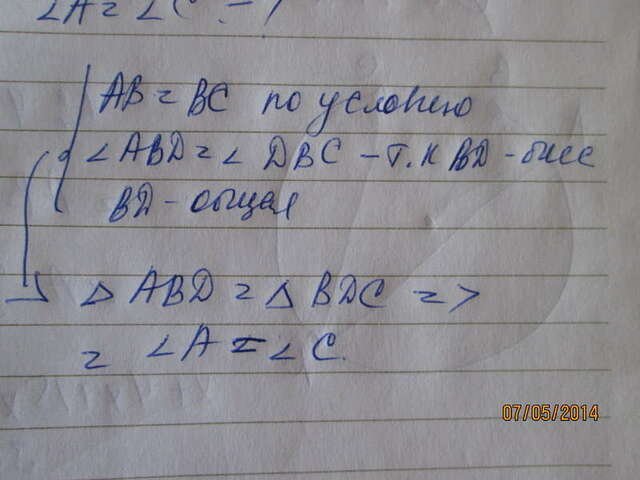 ∠A = ∠C - ?
AB = BC по условию
∠ABD = ∠DBC - т.к BD - бисс
BD - общая
△ABD = △BDC =>
= ∠A = ∠C.
07/05/2014